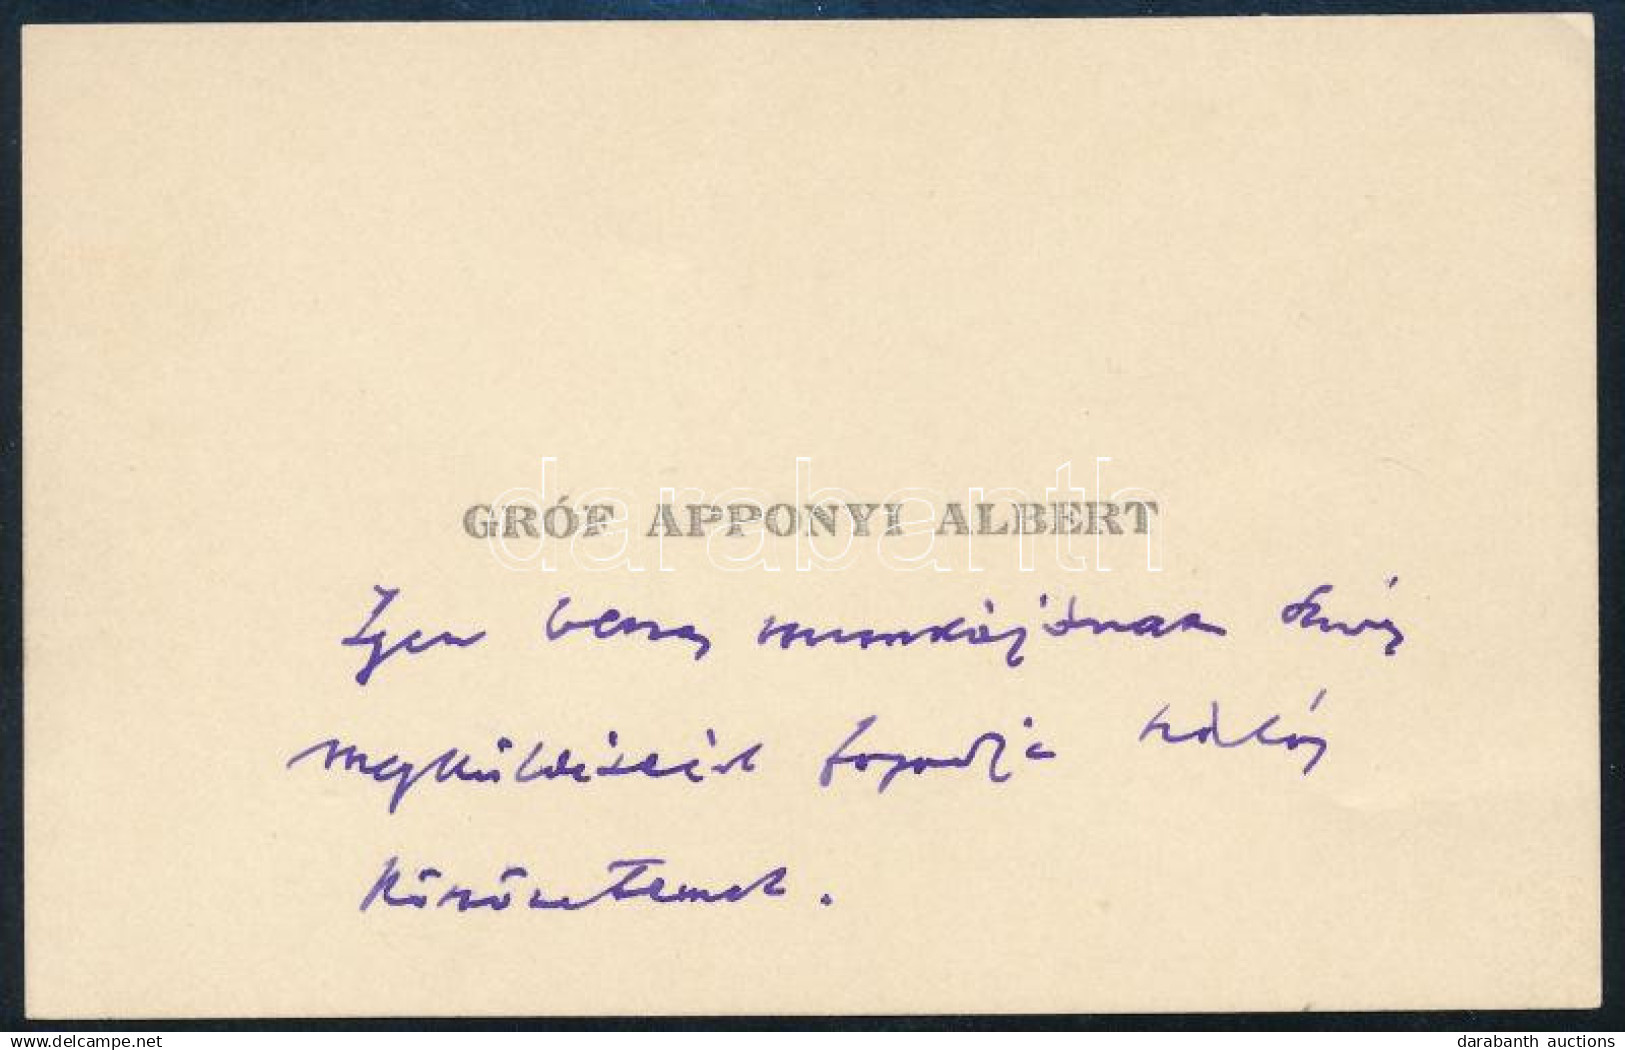 GRÓF APPONYI ALBERT
darabanth
Igen becses munkájának szíves
megküldéséért fogadja hálás
köszönetemet.
delcampe.net
darabanth auctions